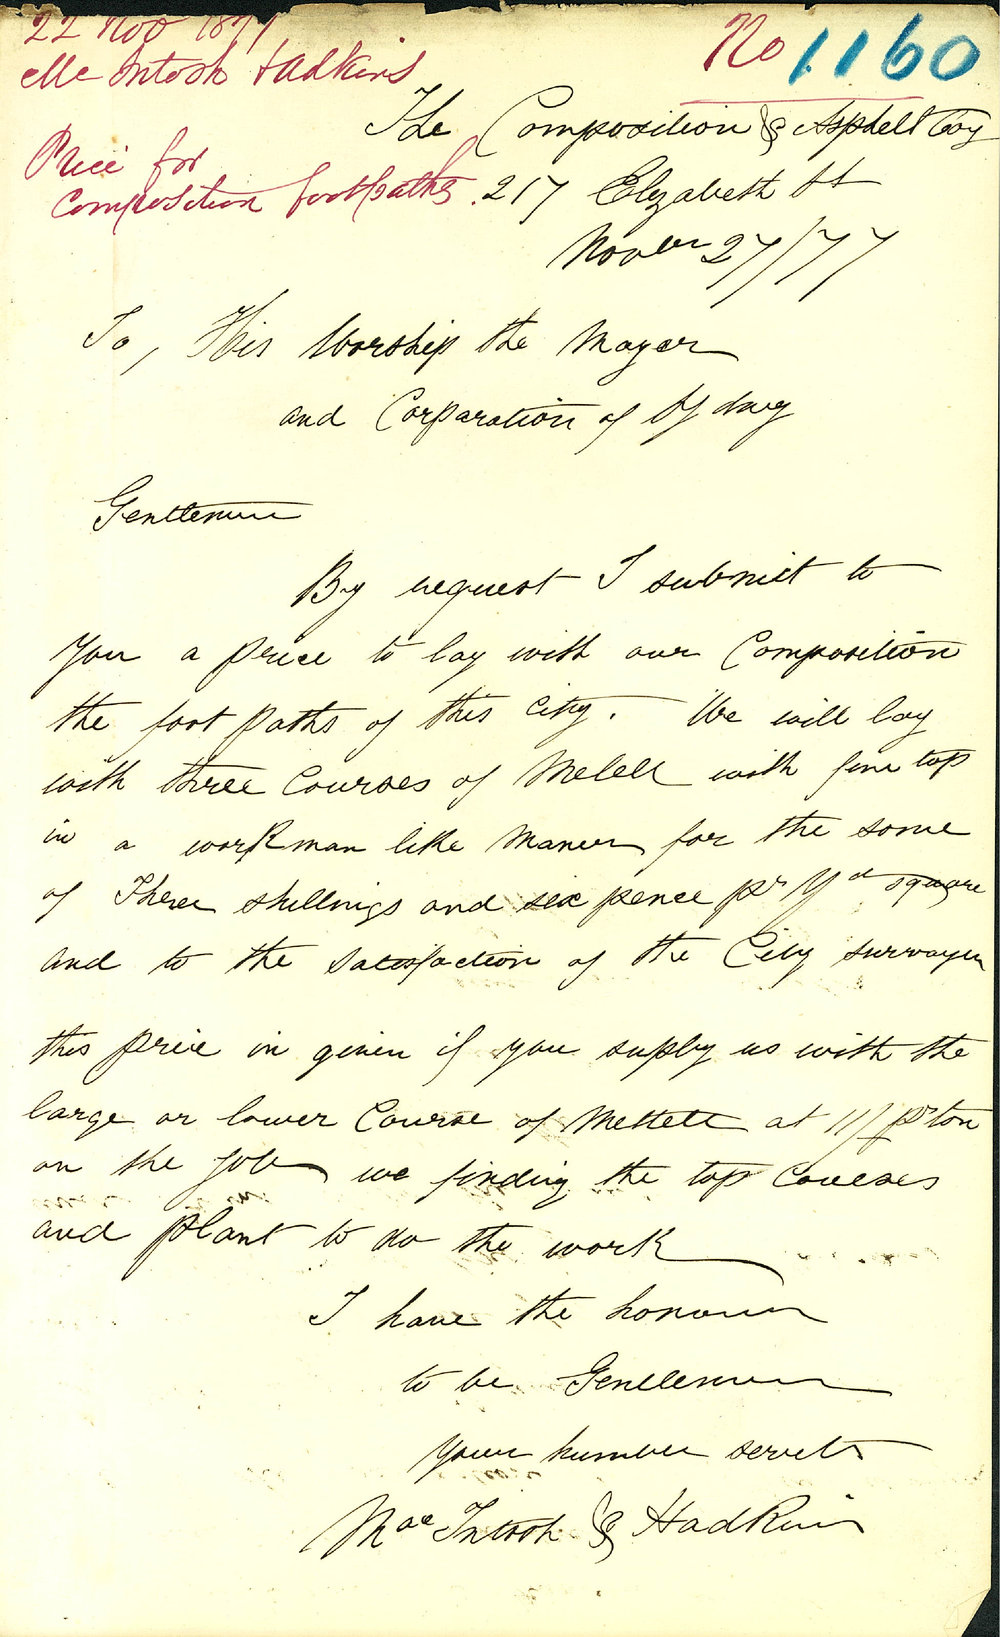 22 Nov 1877
McIntosh & Adkins
No 1160
Price for
Composition footpaths.
The Composition & Asphelt Coy
217 Elizabeth St
Novber 27/77
To, His Worship the Mayer
and Corparation of Sydney
Gentlemen
By request I submit to
You a price to lay with our Composition
the foot paths of this City. We will lay
with three Courses of Metell with fine top
in a workman like Maner for the some
of Three shillings and six pence pr Yd square
and to the Satisfaction of the City survayer
this price in given if you suply us with the
large or lower Course of Mettell at 11/ pr ton
on the Job we finding the top Courses
and plant to do the work
I have the honour
to be Gentlemen
Your humber servts
MacIntosh & Hadkins